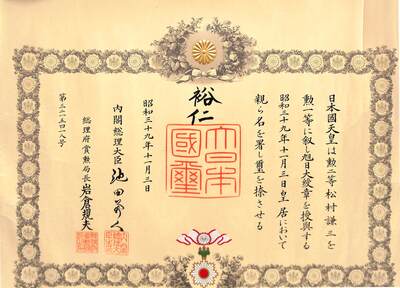 日本國天皇は勲二等松村謙三を
勲一等に叙し旭日大綬章を授與する
昭和三十九年十一月三日皇居において
親ら名を署し璽を捺させる
裕仁
大日本
國璽
昭和三十九年十一月三日
内閣総理大臣 池田勇人
総理府賞勲局長 岩倉規夫